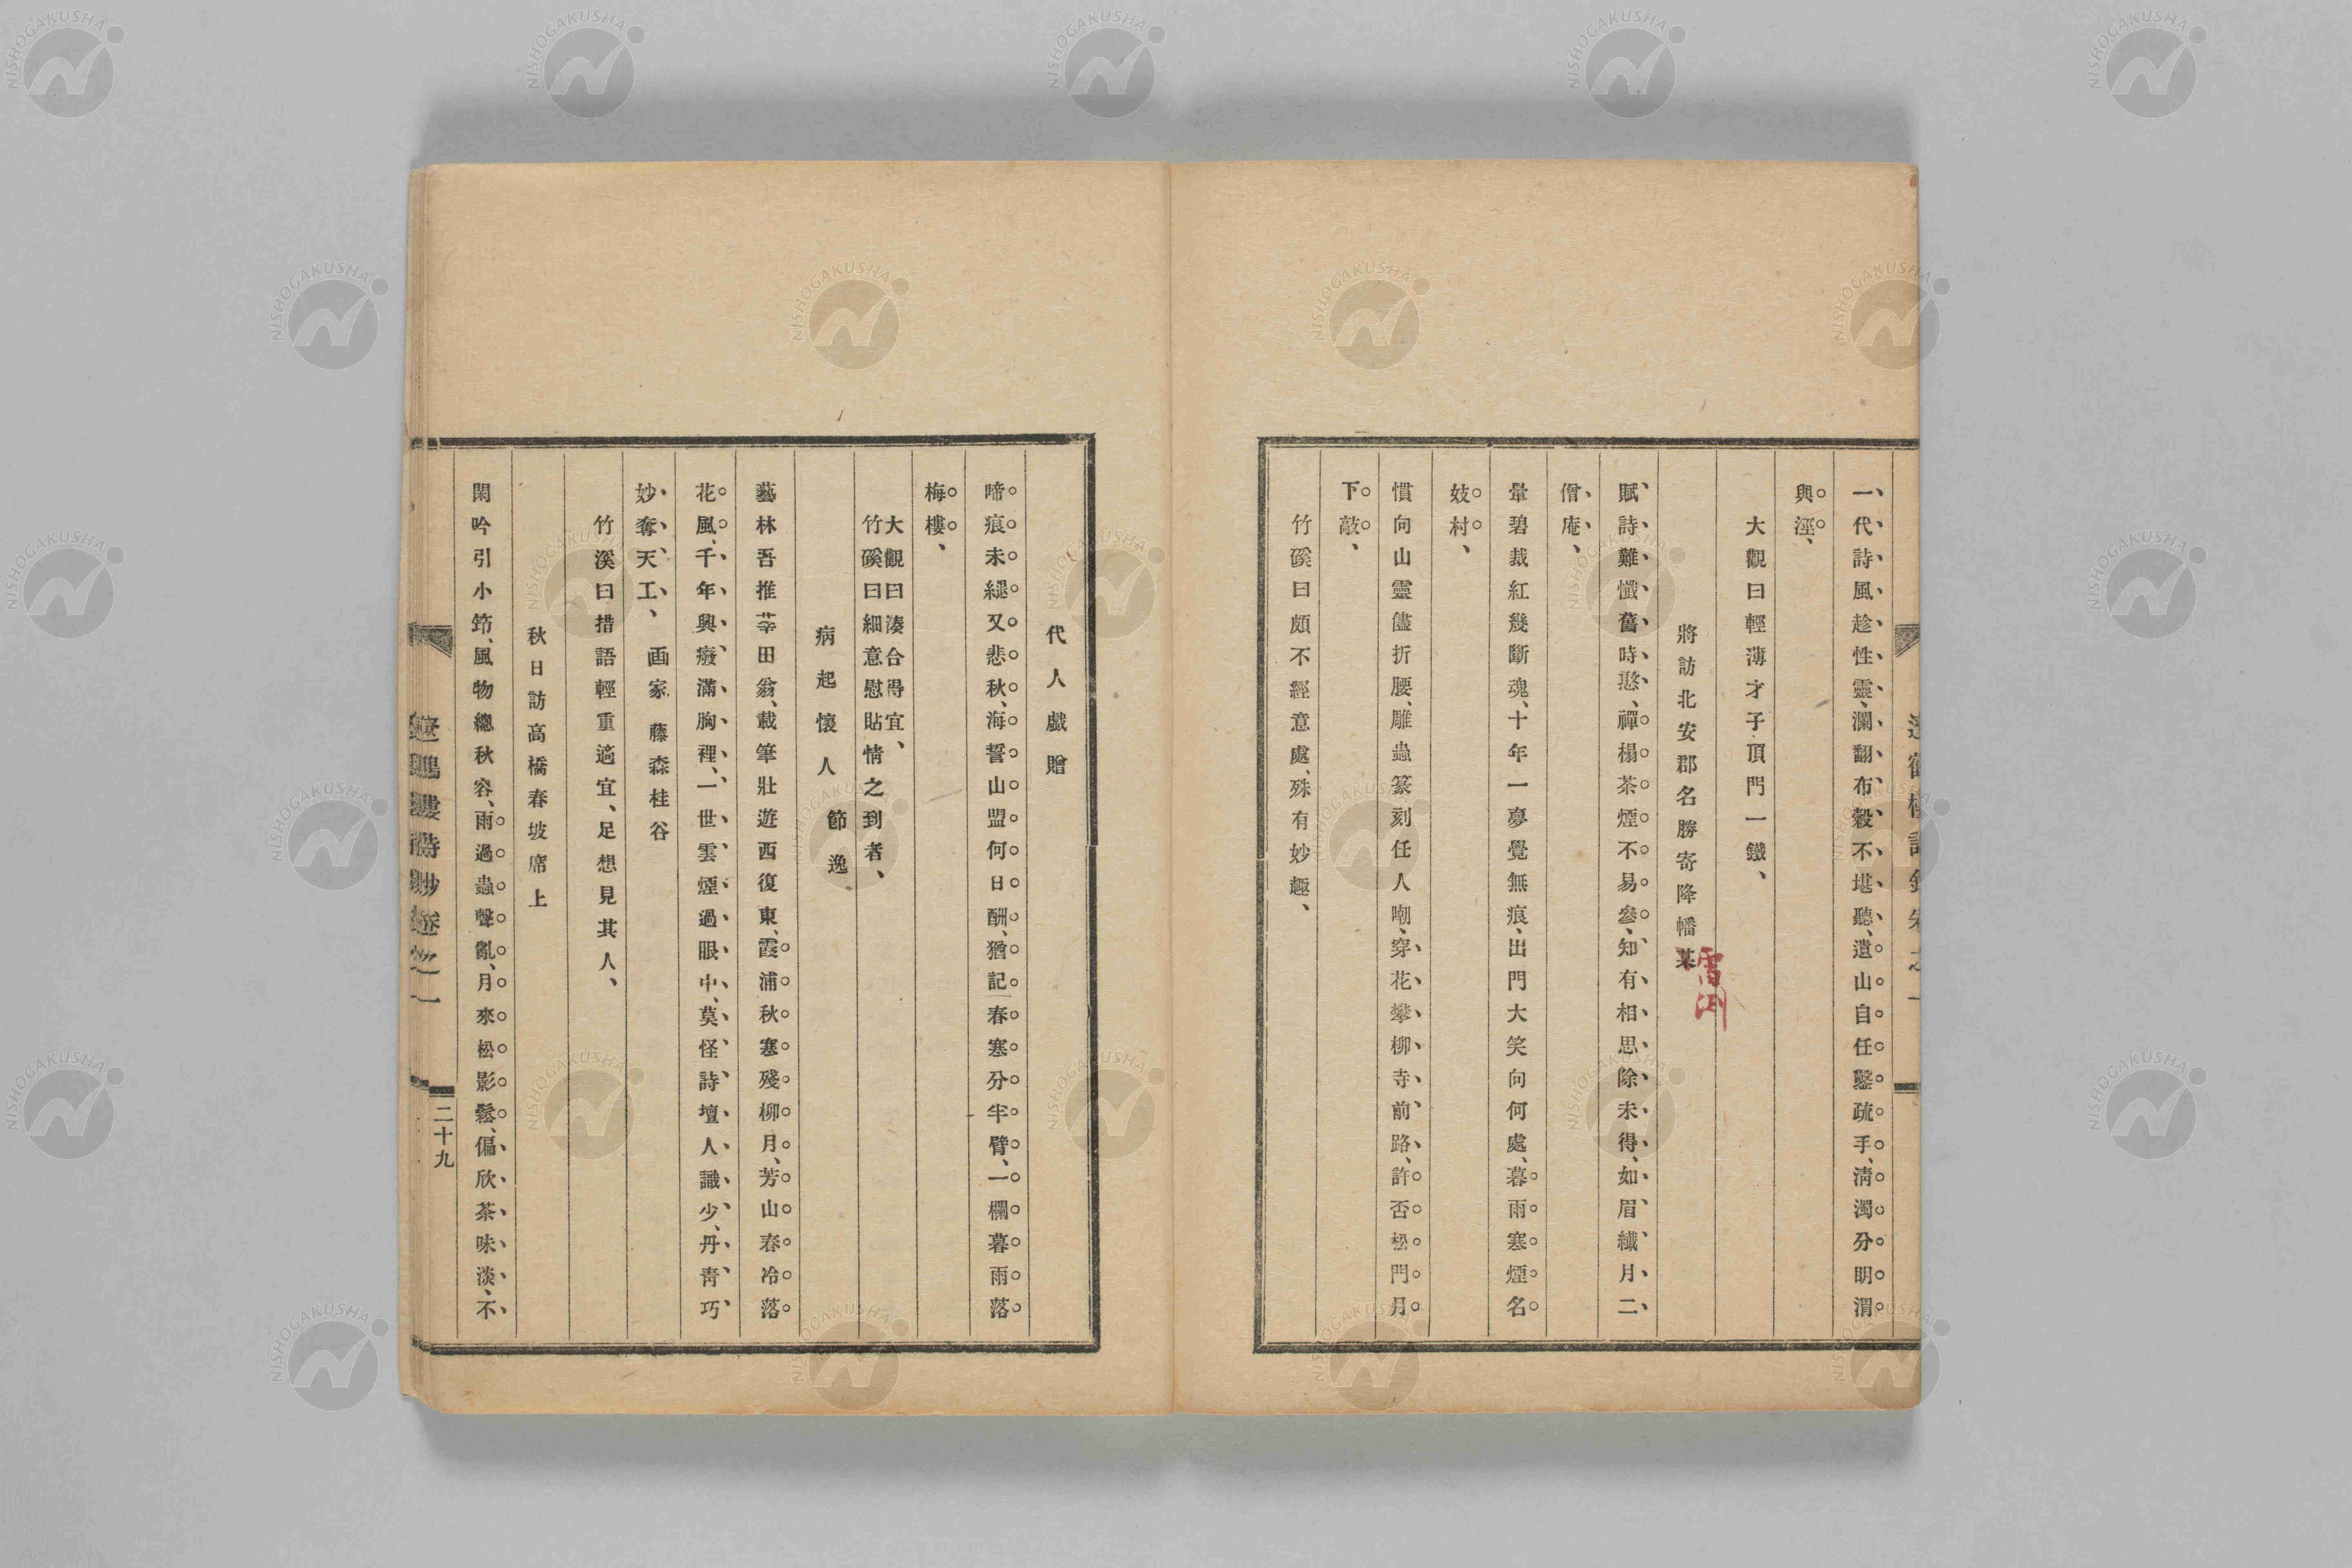 一代詩風趁性靈、瀾翻布穀不堪聽、遺山自任鑿疏手、清濁分明渭
與涇、
大觀曰輕薄才子頂門一鐵、
將訪北安郡名勝寄降幡某
雪渕
賦詩難懺舊時愁、禪榻茶煙不易參、知有相思除未得、如眉纎月二
僧庵、
暈碧裁紅幾斷魂、十年一夢覺無痕、出門大笑向何處、暮雨寒煙名
妓村、
慣向山靈儘折腰、雕蟲篆刻任人嘲、穿花攀柳寺前路、許否松門月
下敲、
竹磎曰頗不經意處、殊有妙趣、
代人戲贈
啼痕未縫又悲秋、海誓山盟何日酬、猶記春寒分半臂、一欄暮雨落
梅樓、
大觀曰湊合得宜、
竹磎曰細意慰貼情之到者、
病起懷人 節逸
藝林吾推莘田翁、載筆壯遊西復東、霞浦秋寒殘柳月、芳山春冷落
花風、千年興癈滿胸裡、一世雲煙過眼中、莫怪詩壇人識少、丹靑巧
妙奪天工、 画家 藤森桂谷
竹溪曰措語輕重適宜、足想見其人、
秋日訪高橋春坡席上
閑吟引小筇、風物總秋容、雨過蟲聲亂、月來松影鬆、偏欣茶味淡、不
詩鈔卷之一
二十九